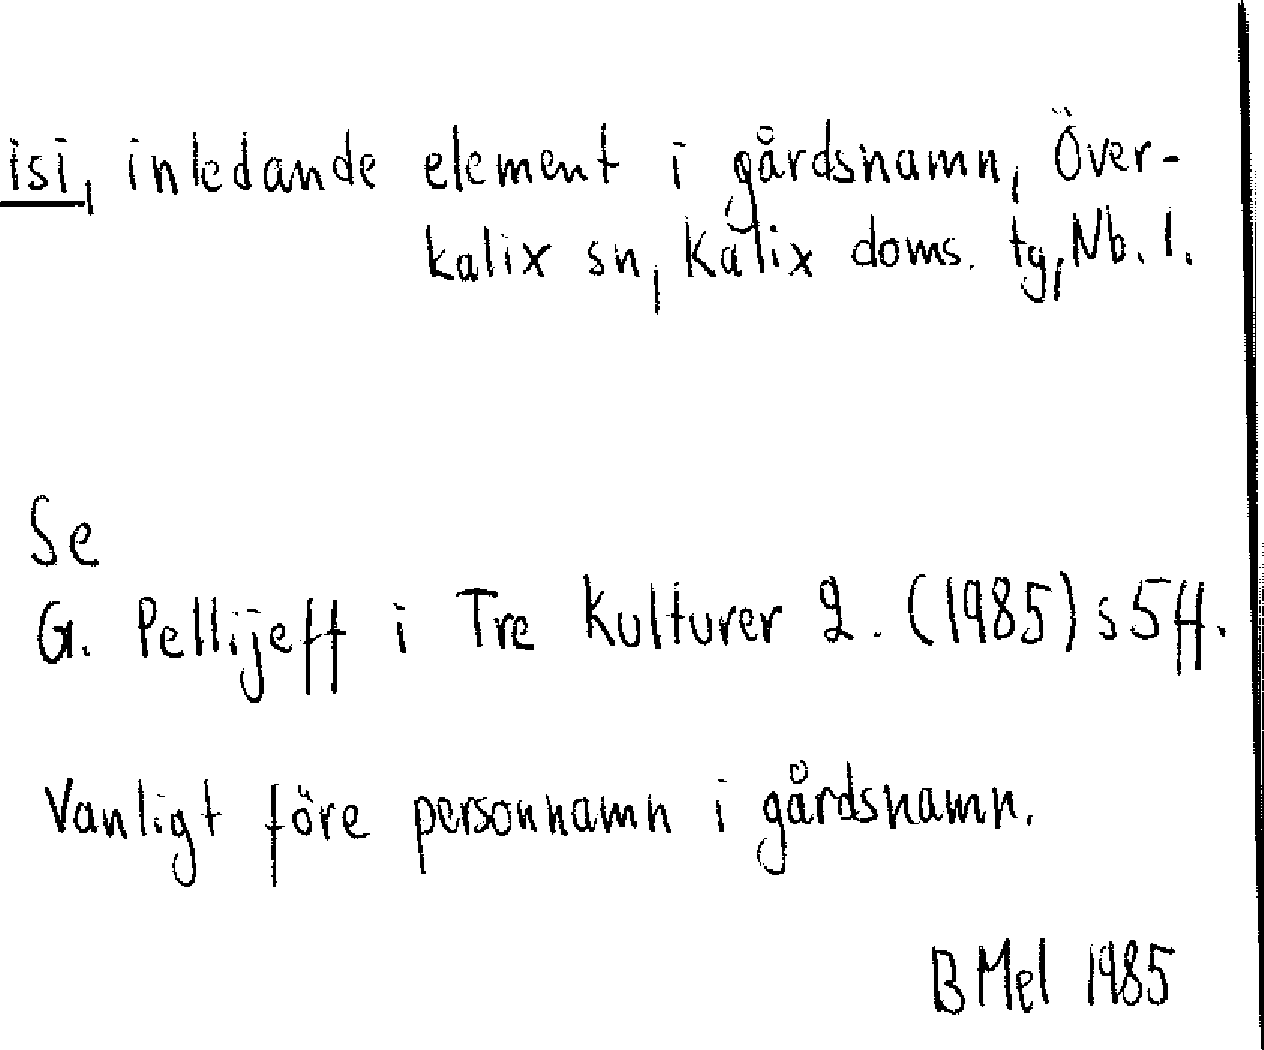 isi, inledande element i gårdsnamn, Över-
kalix sn, Kalix doms. tg, Nb. l.
Se
G. Pellijeff i Tre Kulturer 2. (1985) s 5 ff.
Vanligt före personnamn i gårdsnamn.
B Mel 1985